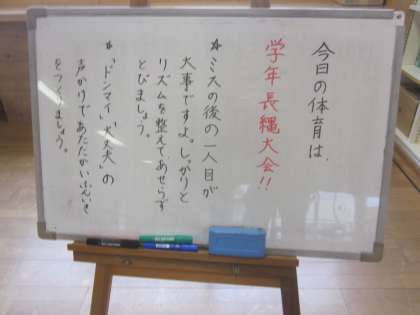 今日の体育は、
学年長縄大会!!
☆ミスの後の一人目が
大事ですよ。しっかりと
リズムを整えて、あせらず
とびましょう。
☆「ドンマイ」、「大丈夫」の
声かけであたたかいふんいき
をつくりましょう。